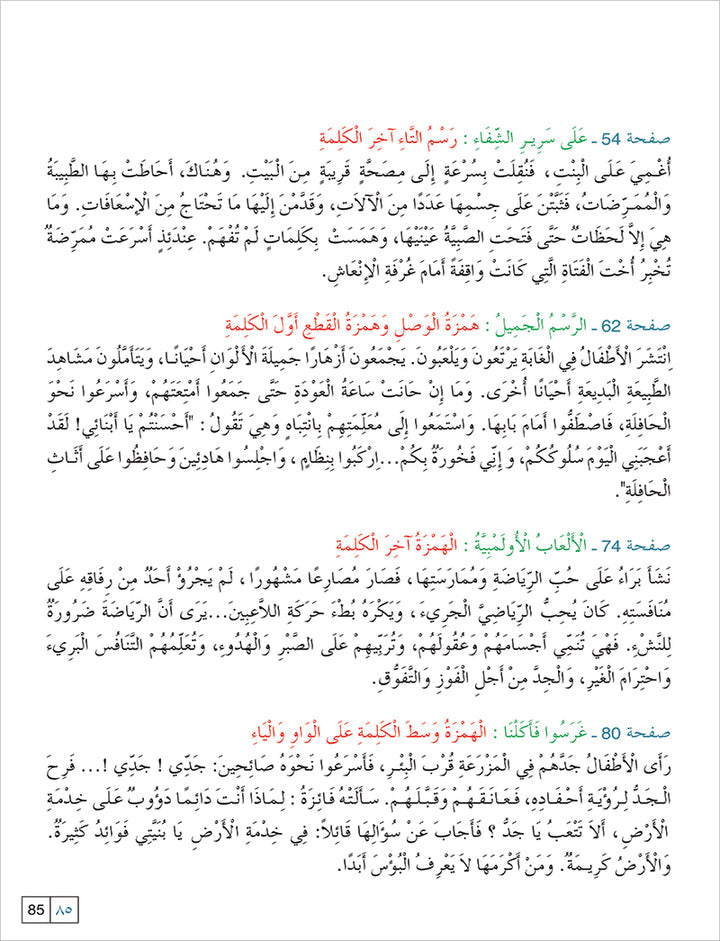 صفحة 54 ـ عَلَى سَرِيرِ الشِّفَاءِ : رَسْمُ التَّاءِ آخِرَ الْكَلِمَةِ
أُغْمِيَ عَلَى الْبِنْتِ، فَنُقِلَتْ بِسُرْعَةٍ إِلَى مِصَحَّةٍ قَرِيبَةٍ مِنَ الْبَيْتِ. وَهُنَاكَ، أَحَاطَتْ بِهَا الطَّبِيبَةُ
وَالْمُمَرِّضَاتُ، فَثَبَّتْنَ عَلَى جِسْمِهَا عَدَدًا مِنَ الْآلاَتِ، وَقَدَّمْنَ إِلَيْهَا مَا تَحْتَاجُ مِنَ الْإِسْعَافَاتِ. وَمَا
هِيَ إِلاَّ لَحَظَاتٌ حَتَّى فَتَحَتِ الصَّبِيَّةُ عَيْنَيْهَا، وَهَمَسَتْ بِكَلِمَاتٍ لَمْ تُفْهَمْ. عِنْدَئِذٍ أَسْرَعَتْ مُمَرِّضَةٌ
تُخْبِرُ أُخْتَ الْفَتَاةِ الَّتِي كَانَتْ وَاقِفَةً أَمَامَ غُرْفَةِ الْإِنْعَاشِ.
صفحة 62 ـ الرَّسْمُ الْجَمِيلُ : هَمْزَةُ الْوَصْلِ وَهَمْزَةُ الْقَطْعِ أَوَّلَ الْكَلِمَةِ
اِنْتَشَرَ الْأَطْفَالُ فِي الْغَابَةِ يَرْتَعُونَ وَيَلْعَبُونَ. يَجْمَعُونَ أَزْهَارًا جَمِيلَةَ الْأَلْوَانِ أَحْيَانًا، وَيَتَأَمَّلُونَ مَشَاهِدَ
الطَّبِيعَةِ الْبَدِيعَةِ أَحْيَانًا أُخْرَى. وَمَا إِنْ حَانَتْ سَاعَةُ الْعَوْدَةِ حَتَّى جَمَعُوا أَمْتِعَتَهُمْ، وَأَسْرَعُوا نَحْوَ
الْحَافِلَةِ، فَاصْطَفُّوا أَمَامَ بَابِهَا. وَاسْتَمَعُوا إِلَى مُعَلِّمَتِهِمْ بِانْتِبَاهٍ وَهِيَ تَقُولُ : "أَحْسَنْتُمْ يَا أَبْنَائِي! لَقَدْ
أَعْجَبَنِي الْيَوْمَ سُلُوكُكُمْ، وَإِنِّي فَخُورَةٌ بِكُمْ...اِرْكَبُوا بِنِظَامٍ، وَاجْلِسُوا هَادِئِينَ وَحَافِظُوا عَلَى أَثَاثِ
الْحَافِلَةِ".
صفحة 74 ـ الْأَلْعَابُ الْأُولَمْبِيَّةُ : الْهَمْزَةُ آخِرَ الْكَلِمَةِ
نَشَأَ بَرَاءُ عَلَى حُبِّ الرِّيَاضَةِ وَمُمَارَسَتِهَا، فَصَارَ مُصَارِعًا مَشْهُورًا، لَمْ يَجْرُؤْ أَحَدٌ مِنْ رِفَاقِهِ عَلَى
مُنَافَسَتِهِ. كَانَ يُحِبُّ الرِّيَاضِيَّ الْجَرِيءَ، وَيَكْرَهُ بُطْءَ حَرَكَةِ اللاَّعِبِينَ...يَرَى أَنَّ الرِّيَاضَةَ ضَرُورَةٌ
لِلنَّشْءِ. فَهْيَ تُنَمِّي أَجْسَامَهُمْ وَعُقُولَهُمْ، وَتُرَبِّيهِمْ عَلَى الصَّبْرِ وَالْهُدُوءِ، وَتُعَلِّمُهُمْ التَّنَافُسَ الْبَرِيءَ
وَاحْتِرَامَ الْغَيْرِ، وَالْجِدَّ مِنْ أَجْلِ الْفَوْزِ وَالتَّفَوُّقِ.
صفحة 80 ـ غَرَسُوا فَأَكَلْنَا : الْهَمْزَةُ وَسَطَ الْكَلِمَةِ عَلَى الْوَاوِ وَالْيَاءِ
رَأَى الْأَطْفَالُ جَدَّهُمْ فِي الْمَزْرَعَةِ قُرْبَ الْبِئْرِ، فَأَسْرَعُوا نَحْوَهُ صَائِحِينَ: جَدِّي ! جَدِّي !... فَرِحَ
الْجَدُّ لِرُؤْيَةِ أَحْفَادِهِ، فَعَانَقَهُمْ وَقَبَّلَهُمْ. سَأَلَتْهُ فَائِزَةُ : لِمَاذَا أَنْتَ دَائِمًا دَؤُوبٌ عَلَى خِدْمَةِ
الْأَرْضِ، أَلاَ تَتْعَبُ يَا جَدُّ ؟ فَأَجَابَ عَنْ سُؤَالِهَا قَائِلاً: فِي خِدْمَةِ الْأَرْضِ يَا بُنَيَّتِي فَوَائِدُ كَثِيرَةٌ.
وَالْأَرْضُ كَرِيمَةٌ. وَمَنْ أَكْرَمَهَا لاَ يَعْرِفُ الْبُؤْسَ أَبَدًا.
85 ٨٥